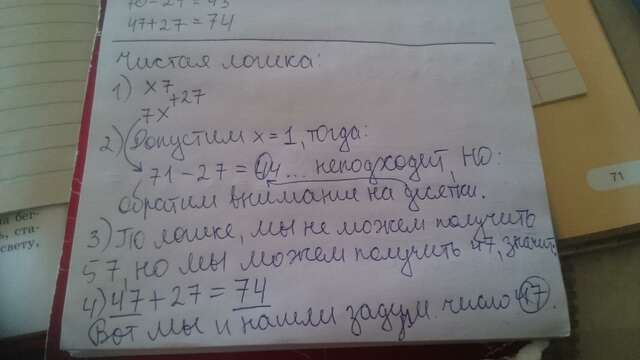 70-27=43
47+27=74
Чистая логика:
1) x7
+27
7x
2) Допустим x=1, тогда:
71-27=44... неподходет, но:
обратим внимание на десятки.
3) По логике, мы не можем получить
57, но мы можем получить 47, значит
4) 47+27=74
Вот мы и нашли задум. число 47.
71
а бег-
ь, ста-
свету,